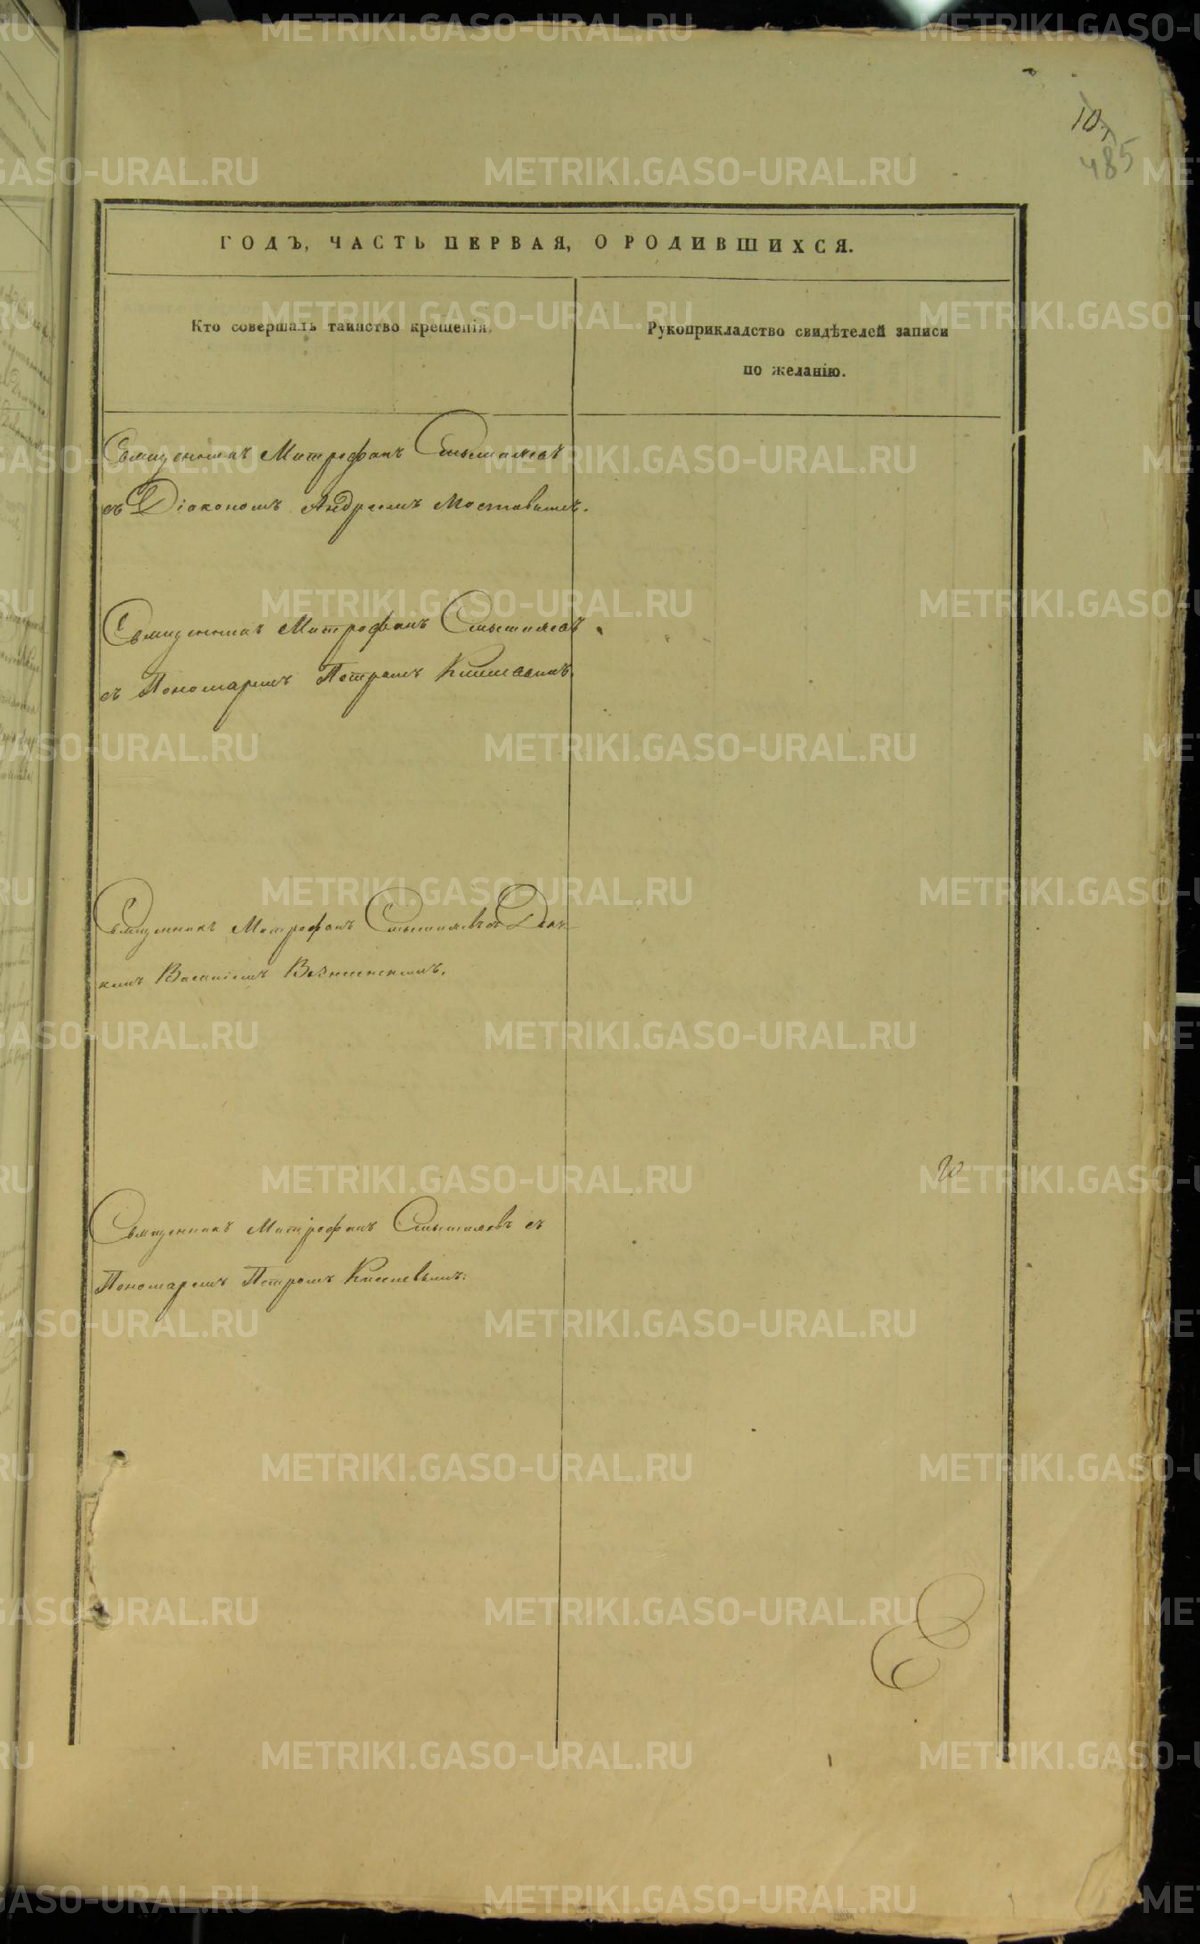 10
485
ГОДЪ, ЧАСТЬ ПЕРВАЯ, О РОДИВШИХСЯ.
Кто совершалъ таинство крещенія.
Рукоприкладство свидѣтелей записи
по желанію.
Священникъ Митрофанъ Смышляевъ
съ Діакономъ Андреемъ Мостовымъ.
Священникъ Митрофанъ Смышляевъ
съ Пономаремъ Петромъ
Священникъ Митрофанъ Смышляевъ съ Дьяч-
комъ Василіемъ
Священникъ Митрофанъ Смышляевъ съ
Пономаремъ Петромъ Киселевымъ.
METRIKI.GASO-URAL.RU